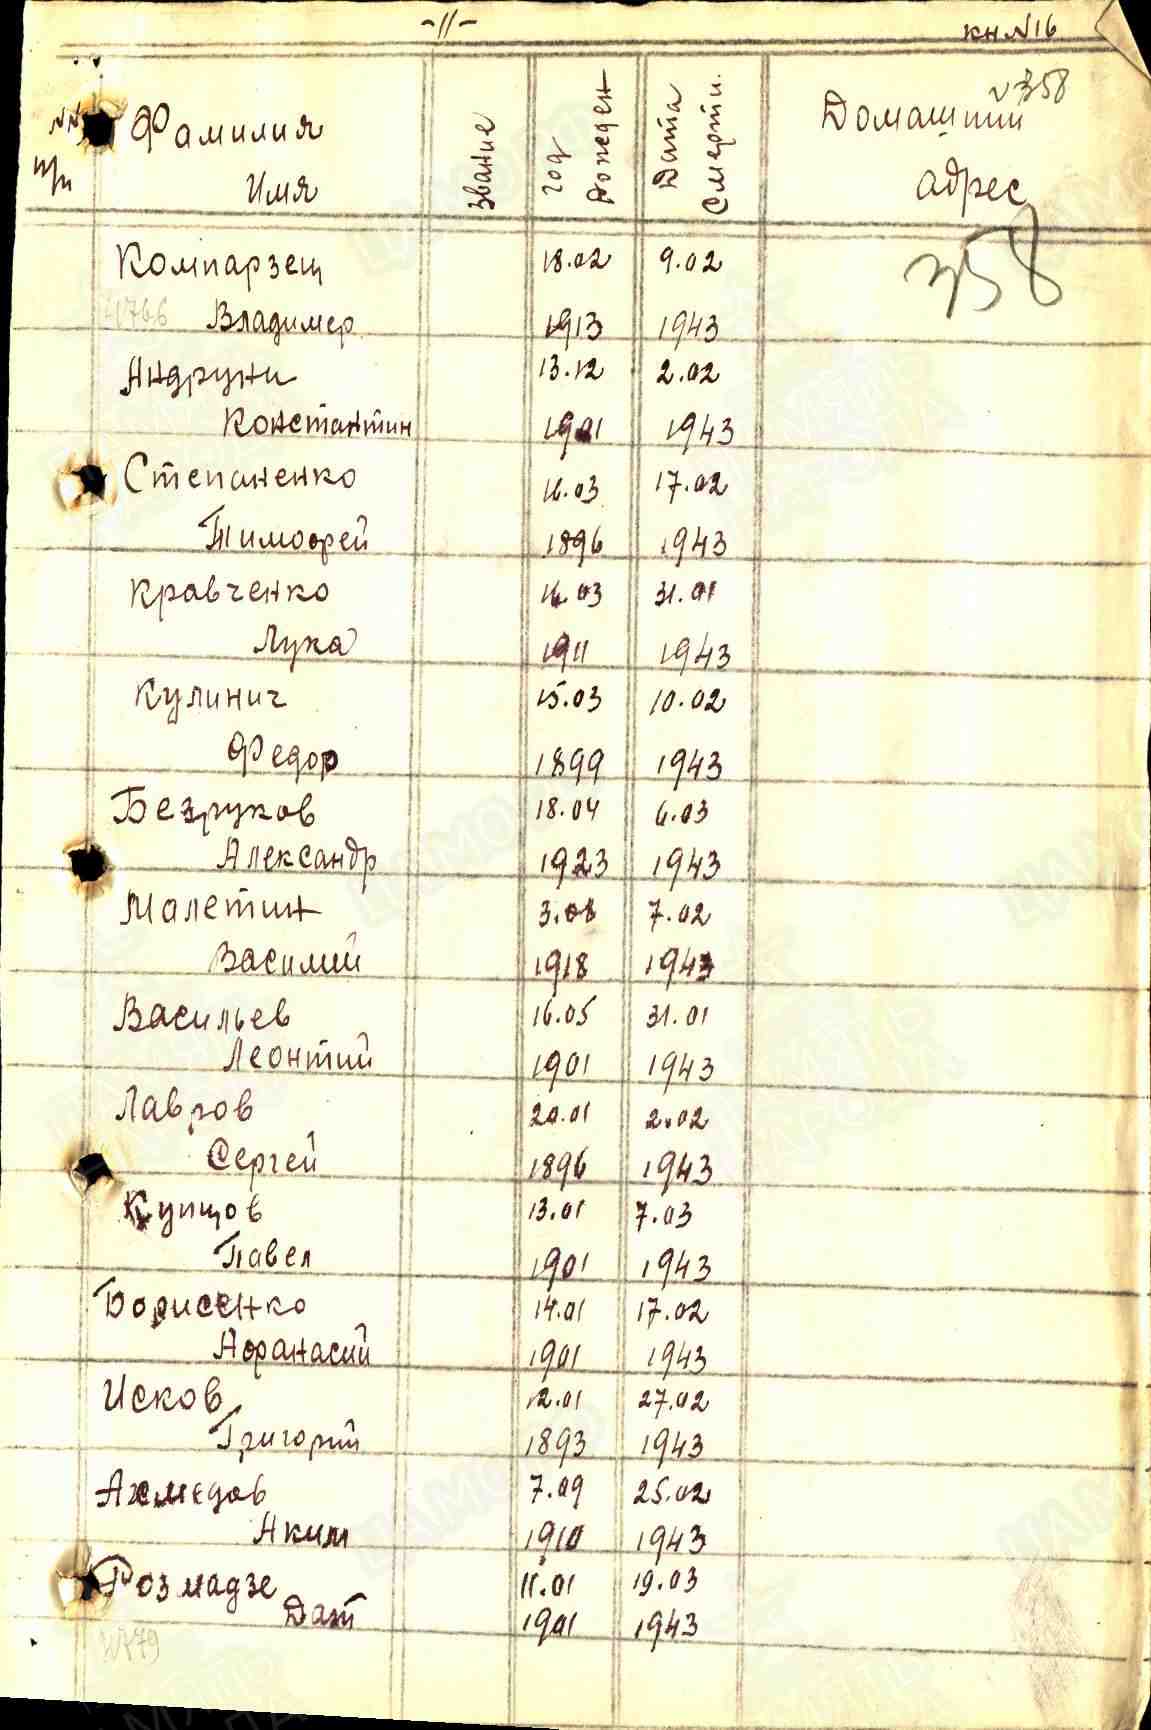 -11-
кн. N16
v 358
NN п/п
Фамилия Имя
Звание
год рожден
Дата Смерти.
Домашний адрес
358
Компарзец 18.02 9.02
Владимер 1913 1943
Андруни 13.12 2.02
Константин 1901 1943
Степаненко 16.03 17.02
Тимофей 1896 1943
Кравченко 16.03 31.01
Лука 1911 1943
Кулинич 15.03 10.02
Федор 1899 1943
Безруков 18.04 6.03
Александр 1923 1943
Малетин 3.08 7.02
Василий 1918 1943
Васильев 16.05 31.01
Леонтий 1901 1943
Лавров 20.01 2.02
Сергей 1896 1943
Купцов 13.01 7.03
Павел 1901 1943
Борисенко 14.01 17.02
Афанасий 1901 1943
Исков 12.01 27.02
Григорий 1893 1943
Ахмедов 7.09 25.02
Аким 1910 1943
Розмадзе 11.01 19.03
1901 1943